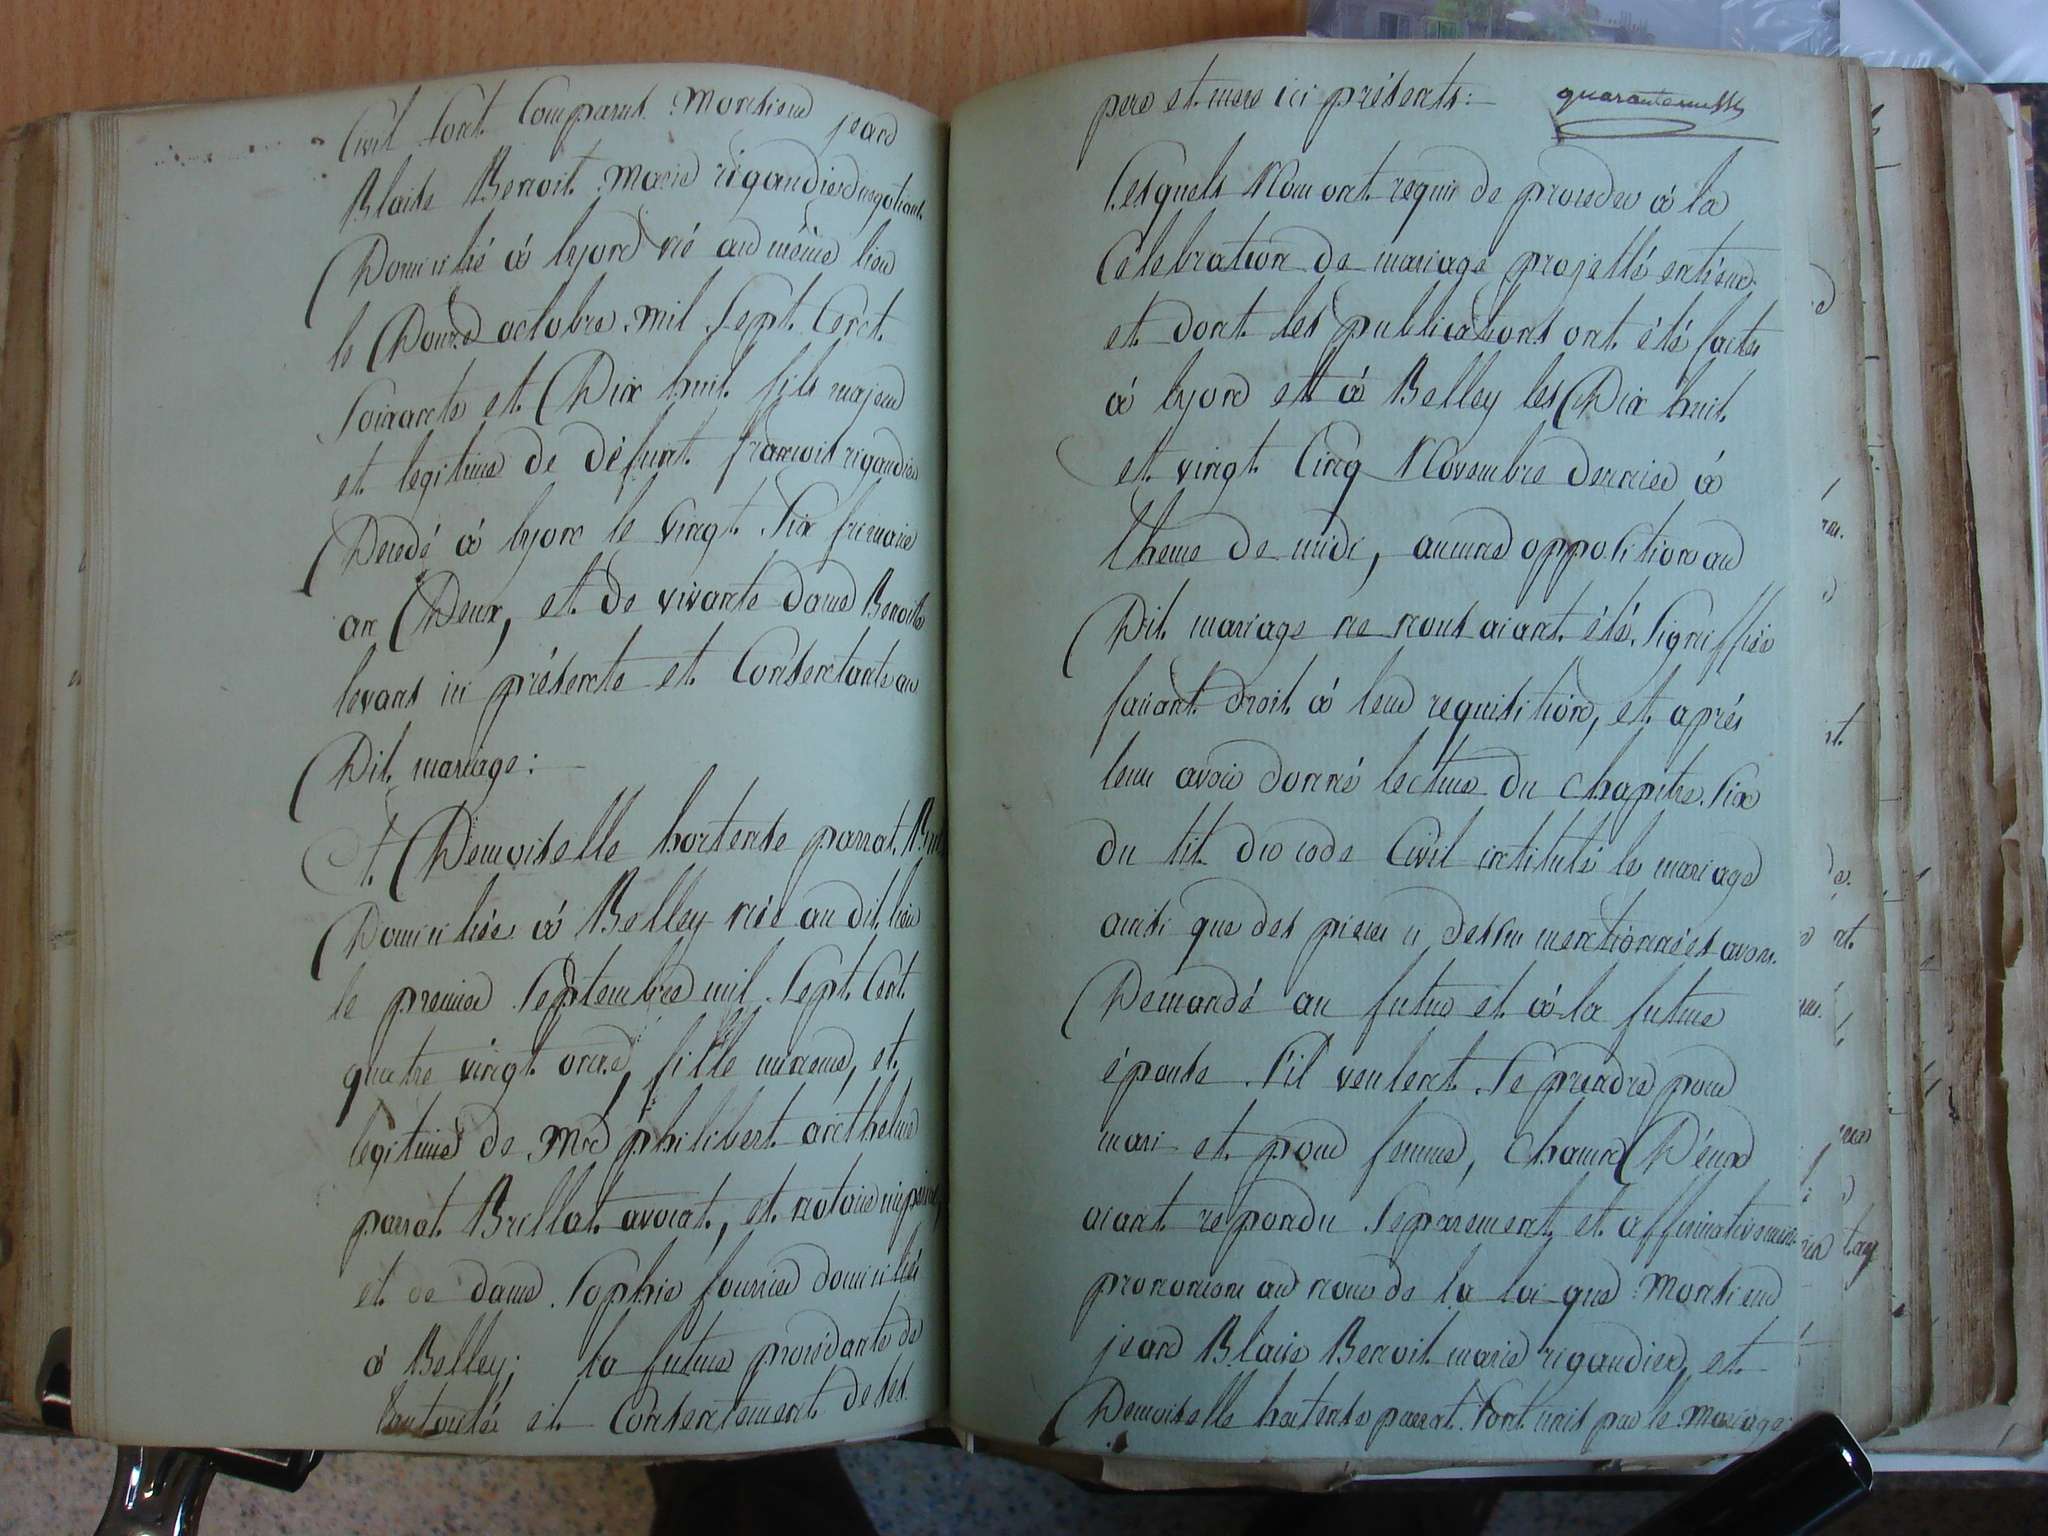 Civil sont Comparus Monsieur jean
Blaise Benoit Marie rigaudier negotiant
Domicilié à lyon né au même lieu
le Douze octobre mil sept Cent
soixante et Dix huit fils majeur
et legitime de défunt francois rigaudier
Décédé à lyon le vingt six frimaire
an Deux, et de vivante dame Benoite
levans ici présente et Consentante au
Dit mariage :
Et Demoiselle hortense parrat Brillat
Domiciliée à Belley née au dit lieu
le premier Septembre mil sept Cent
quatre vingt onze, fille mineure, et
legitime de Mr philibert anthelme
parrat Brillat avocat, et notaire imperial,
et de dame Sophie fournier domiciliés
à Belley; la future procédante de
l'autorité et Consentement de ses
pere et mere ici présents :
quaranteneuf
Lesquels Nous ont requis de proceder à la
Célébration de mariage projetté entieux
et dont les publications ont été faites
à lyon et à Belley les Dix huit
et vingt Cinq Novembre dernier à
lheure de midi, aucune opposition au
Dit mariage ne nous aiant été signiffiée
faisant droit à leur requisition, et aprés
leur avoir donné lecture du chapitre six
du tit du code Civil intitulé le mariage
ainsi que des pieces ci dessus mentionnées avons
Demandé au futur et à la future
épouse s'il veulent se prendre pour
mari et pour femme, chacun D'eux
aiant repondu separement et affirmativement
prononcons au nom de la loi que Monsieur
jean Blaise Benoit marie rigaudier, et
Demoiselle hortense parrat sont unis par le mariage